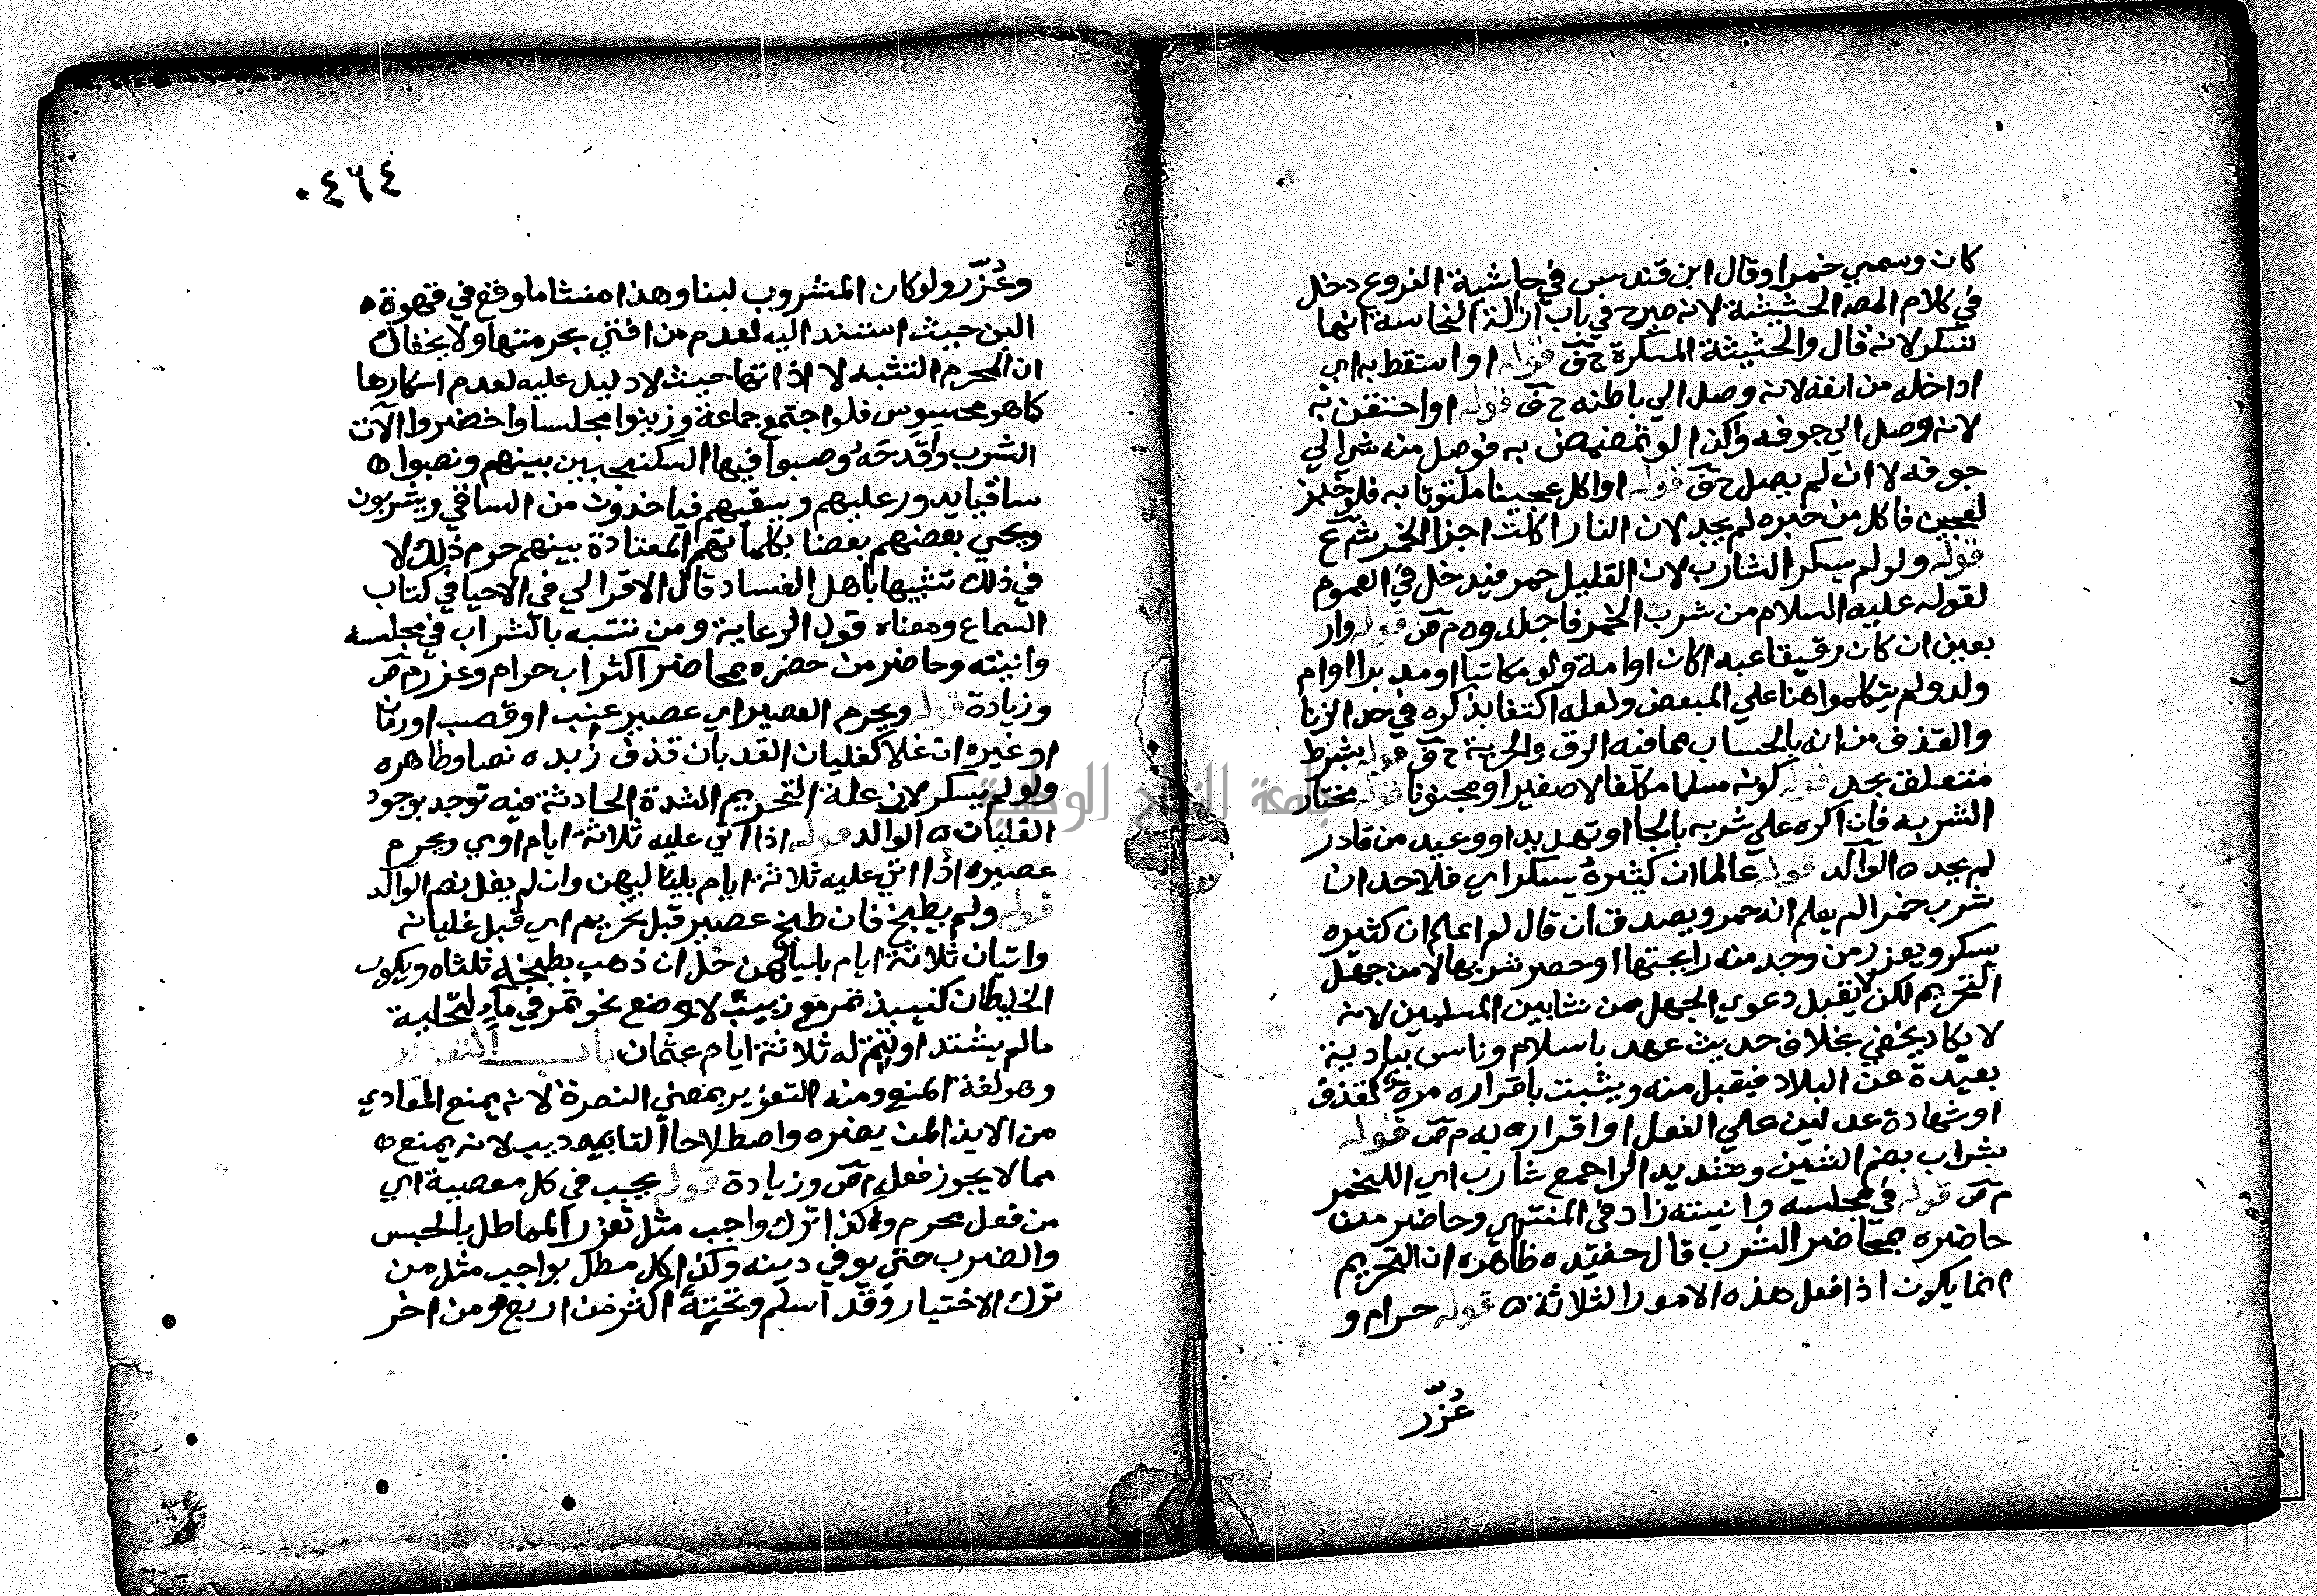 كان وسمي خمرا وقال ابن قندس في حاشية الفروع دخل
في كلام المص الحشيشة لانه صرح في باب ازالة النجاسة انها
تسكر لانه قال والحشيشة المسكرة ح ق قوله او استقط به اي
ادخله من انفه لانه وصل الي باطنه ح ق قوله او احتقن به
لانه وصل الي جوفه وكذا لو تمضمض به فوصل منه شي الي
جوفه لا ان لم يصل ح ق قوله او اكل عجينا ملتوتا به فلو خبز
لعجين فاكل من خبزه لم يحد لان النار اكلت اجزا الخمر ش ع
قوله ولو لم يسكر الشارب لان القليل خمر فيدخل في العموم
لقوله عليه السلام من شرب الخمر فاجلدوه م ص قوله وار
بعين ان كان رقيقا عبدا كان او امة ولو مكاتبا او مدبرا او ام
ولد ولم يتكلموا هنا علي المبعض ولعله اكتفا بذكره في حد الزنا
والقذف من انه بالحساب مما فيه الرق والحرية ح ق قوله بشرط
متعلق بحد قوله كونه مسلما مكلفا لا صغيرا او مجنونا قوله مختار
الشربه فان اكره علي شربه بالجا او تهديد او وعيد من قادر
لم يحد ه الوالد قوله عالما ان كثيره يسكر اي فلا حد ان
شرب خمرا لم يعلم انه خمر ويصدق ان قال لم اعلم ان كثيره
يسكر ويعزر من وجد منه رايحتها او حصر شربها لا من جهل
التحريم لكن لا يقبل دعوي الجهل ممن نشا بين المسلمين لانه
لا يكاد يخفي بخلاف حديث عهد باسلام وناس ببادية
بعيدة عن البلاد فيقبل منه ويثبت باقراره مرة كقذف
او شهادة عدلين علي الفعل او اقراره به م ص قوله
بشراب بضم الشين وتشديد الرا جمع شارب اي للخمر
م ص قوله في مجلسه وانيته زاد في المنتهي وحاضر من
حاضره بمحاضر الشرب قال حفيده ظاهره ان التحريم
انما يكون اذا فعل هذه الامور الثلاثة ه قوله حرام و
عُزّر
٠٤٦٤
وعُزّر ولو كان المشروب لبنا وهذا منشا ما وقع في قهوة
البن حيث استند اليه لعدم من افتي بحرمتها ولا يخفاك
ان المحرم التشبه لا اذاتها حيث لا دليل عليه لعدم اسكارها
كما هو محسوس فلو اجتمع جماعة وزينوا مجلسا واحضروا الات
الشرب واقدحه وصبوا فيها السكنجبين بينهم ونصبوا ه
ساقيا يدور عليهم ويسقيهم فياخذون من الساقي ويشربون
ويحي بعضهم بعضا بكلماتهم المعتادة بينهم حرم ذلك لا
في ذلك تشبيها باهل الفساد قال الاقرالي في الاحيا في كتاب
السماع ومعناه قول الرعاية ومن تشبه بالشراب في مجلسه
وانيته وحاضر من حضره بمحاضر الشراب حرام وعزر م ص
وزيادة قوله ويحرم العصير اي عصير عنب او قصب او رمان
او غيره ان غلا كغليان القدر بان قذف زبده نصا وظاهره
ولو لم يسكر لان علة التحريم الشدة الحادثة فيه توجد بوجود
الغليان ه الوالد قوله اذا اتي عليه ثلاثة ايام اوي ويحرم
عصيره اذا اتي عليه ثلاثة ايام بلياليهن وان لم يغل نص الوالد
قوله ولم يطبخ فان طبخ عصير قبل تحريم اي قبل غليانه
واتيان ثلاثة ايام بلياليهن حل ان ذهب بطبخه ثلثاه ويكره
الخليطان كنبيذ تمر مع زبيب لا وضع نحو تمر في ما لتحلية
ما لم يشتد او تتم له ثلاثة ايام عثمان باب التعزير
وهو لغة المنع ومنه التعزير بمعني النصرة لانه يمنع المعادي
من الايذا لمن يعزره واصطلاحا التاديب لانه يمنع ه
مما لا يجوز فعله م ص وزيادة قوله يجب في كل معصية اي
من فعل محرم وكذا ترك واجب مثل تعزر المماطل بالحبس
والضرب حتي يوفي دينه وكذا كل مطل بواجب مثل من
ترك الاختيار وقد اسلم وتحته اكثر من اربع ومن اخر